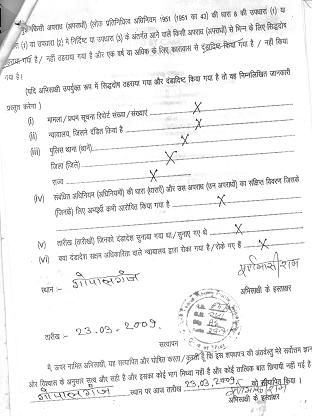 मुझे किसी अपराध (अपराधों) (लोक प्रतिनिधित्व अधिनियम 1951 (1951 का 42) की धारा 8 की उपधारा (1) या
(1) या उपधारा (2) में निर्दिष्ट या उपधारा (3) के अंतर्गत आने वाले किसी अपराध (अपराधों) से भिन्न के लिए सिद्धदोष
गया है/ नहीं ठहराया गया है और एक वर्ष या अधिक के कारावास से दंडादिष्ट किया गया है / नहीं किया
गया है।
(यदि अभिसाक्षी उपर्युक्त रूप में सिद्धदोष ठहराया गया और दंडादिष्ट किया गया है तो वह निम्नलिखित जानकारी
प्रस्तुत करेगा )
(i) मामला/प्रथम सूचना रिपोर्ट संख्या/संख्याएं X
(ii) न्यायालय, जिसने दंडित किया है X
(iii) पुलिस थाना (थाने) X
जिला (जिले) X
राज्य X
(iv) संबंधित अधिनियम (अधिनियमों) की धारा (धाराएँ) और उस अपराध (उन अपराधों) का संक्षिप्त विवरण जिसके
(जिनके) लिए अभ्यर्थी आरोपित किया गया है X
(v) तारीख (तारीखें) जिनको दंडादेश सुनाया गया था/सुनाए गए थे X
(vi) क्या दंडादेश सक्षम अधिकारिता वाले न्यायालय द्वारा रोका गया है/रोके गए हैं X
स्थान :- गोपालगंज
अभिसाक्षी के हस्ताक्षर
तारीख :- 23.03-2009.
सत्यापन
मैं, ऊपर नामित अभिसाक्षी, यह सत्यापित और घोषित करता/ करती हूँ कि इस शपथपत्र की अंतर्वस्तु मेरे सर्वोत्तम ज्ञान
और विश्वास के अनुसार सत्य और सही है और इसका कोई भाग मिथ्या नहीं है और कोई तात्विक बात छिपायी नहीं गई है
गोपालगंज स्थान पर आज तारीख 23.03.2009 को सत्यापित किया।
अभिसाक्षी के हस्ताक्षर